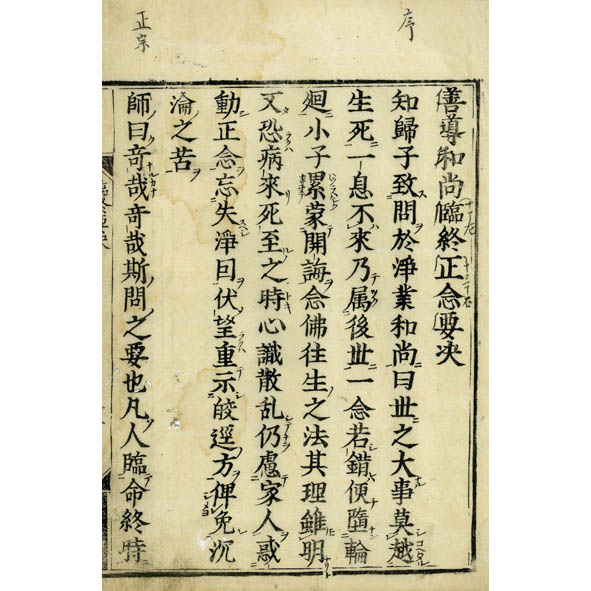 序
善導和尚臨終正念要决
知歸子致問於淨業和尚曰世之大事莫越
生死一息不來乃属後世一念若錯便墮輪
廻小子累蒙開誨念佛往生之法其理雖明
又恐病來死至之時心識散乱仍慮家人惑
動正念忘失淨因伏望重示的逕方俾免沉
淪之苦
師曰奇哉奇哉斯問之要也凡人臨命終時
正宗